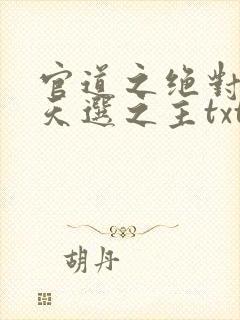 官道之绝對
天選之主txt
胡丹